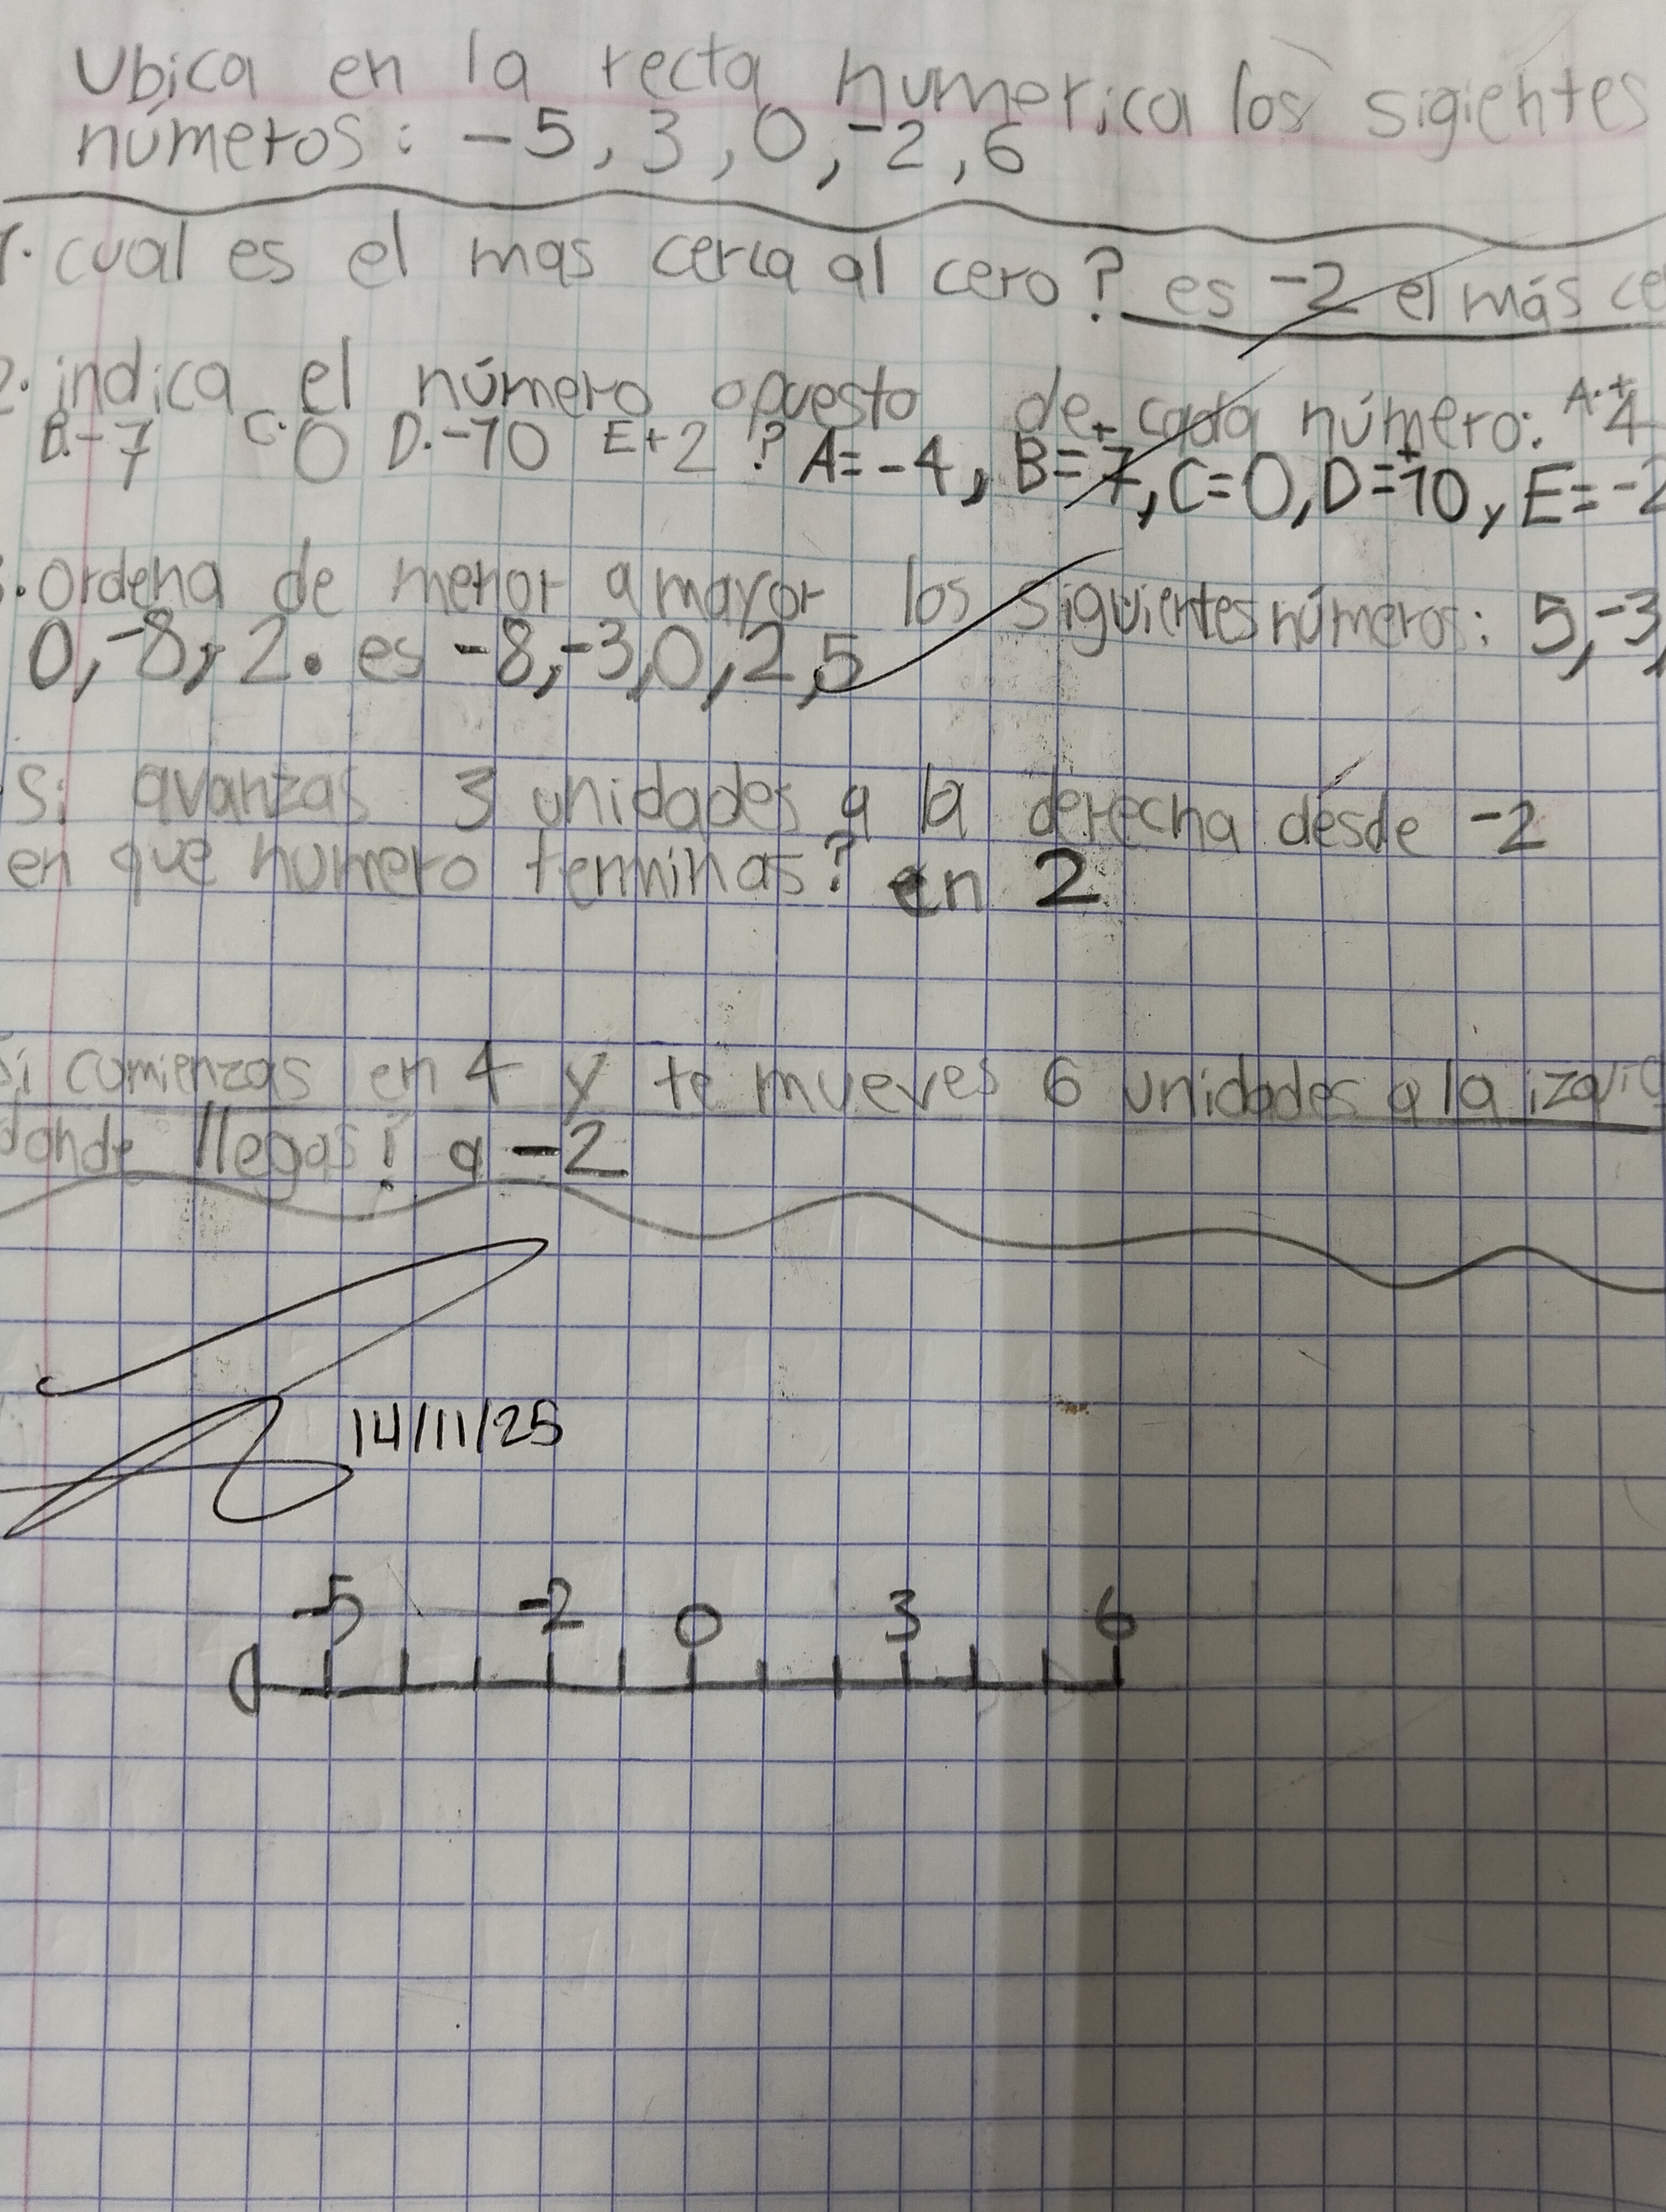 Ubica en la recta numerica los sigientes
números: -5, 3, 0, -2, 6
1. cual es el mas cerca al cero? es -2 el más ce
2. indica el número opuesto de cada número: A.+4
B.-7 C.0 D.-10 E+2 ? A=-4, B=+7, C=0, D=+10, y E=-2
3. Ordena de menor a mayor los siguientes números: 5, -3,
0, -8, 2. es -8, -3, 0, 2, 5
Si avanzas 3 unidades a la derecha desde -2
en que numero terminas? en 2
Si comienzas en 4 y te mueves 6 unidades a la izqui
donde llegas? a -2
14/11/25
-5 -2 0 3 6